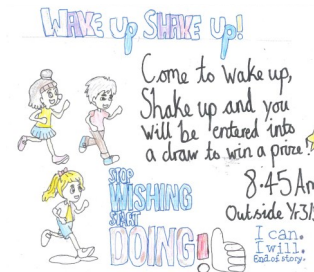 WAKE UP SHAKE UP!
Come to wake up,
Shake up and you
will be entered into
a draw to win a prize!
8.45Am
Outside Yr3/
STOP
WISHING
START
DOING!
I can.
I will.
End of story.